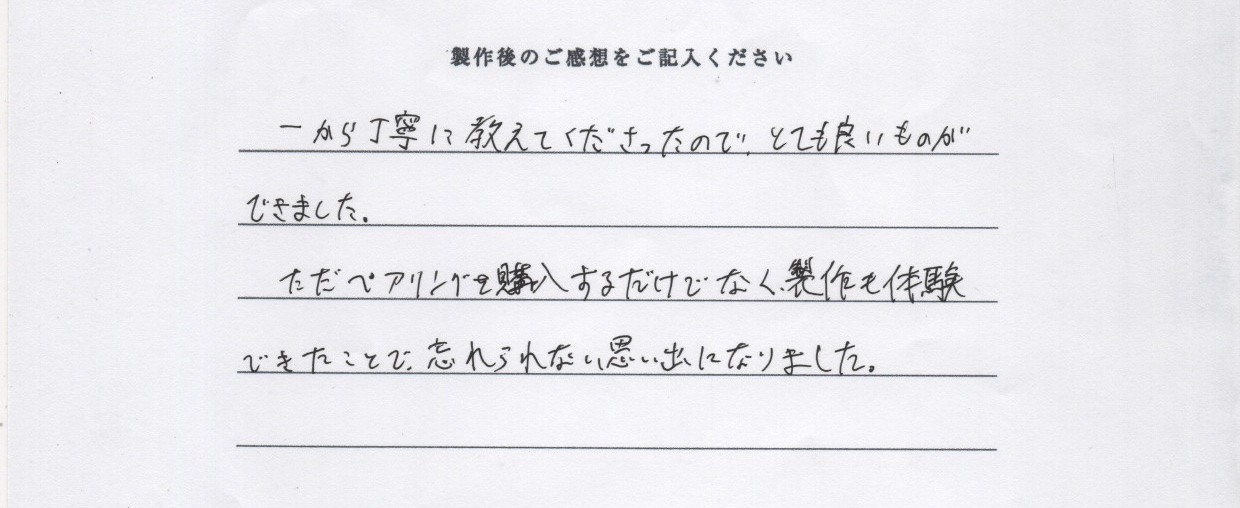 製作後のご感想をご記入ください
一から丁寧に教えてくださったので、とても良いものが
できました。
ただペアリングを購入するだけでなく、製作も体験
できたことで、忘れられない思い出になりました。